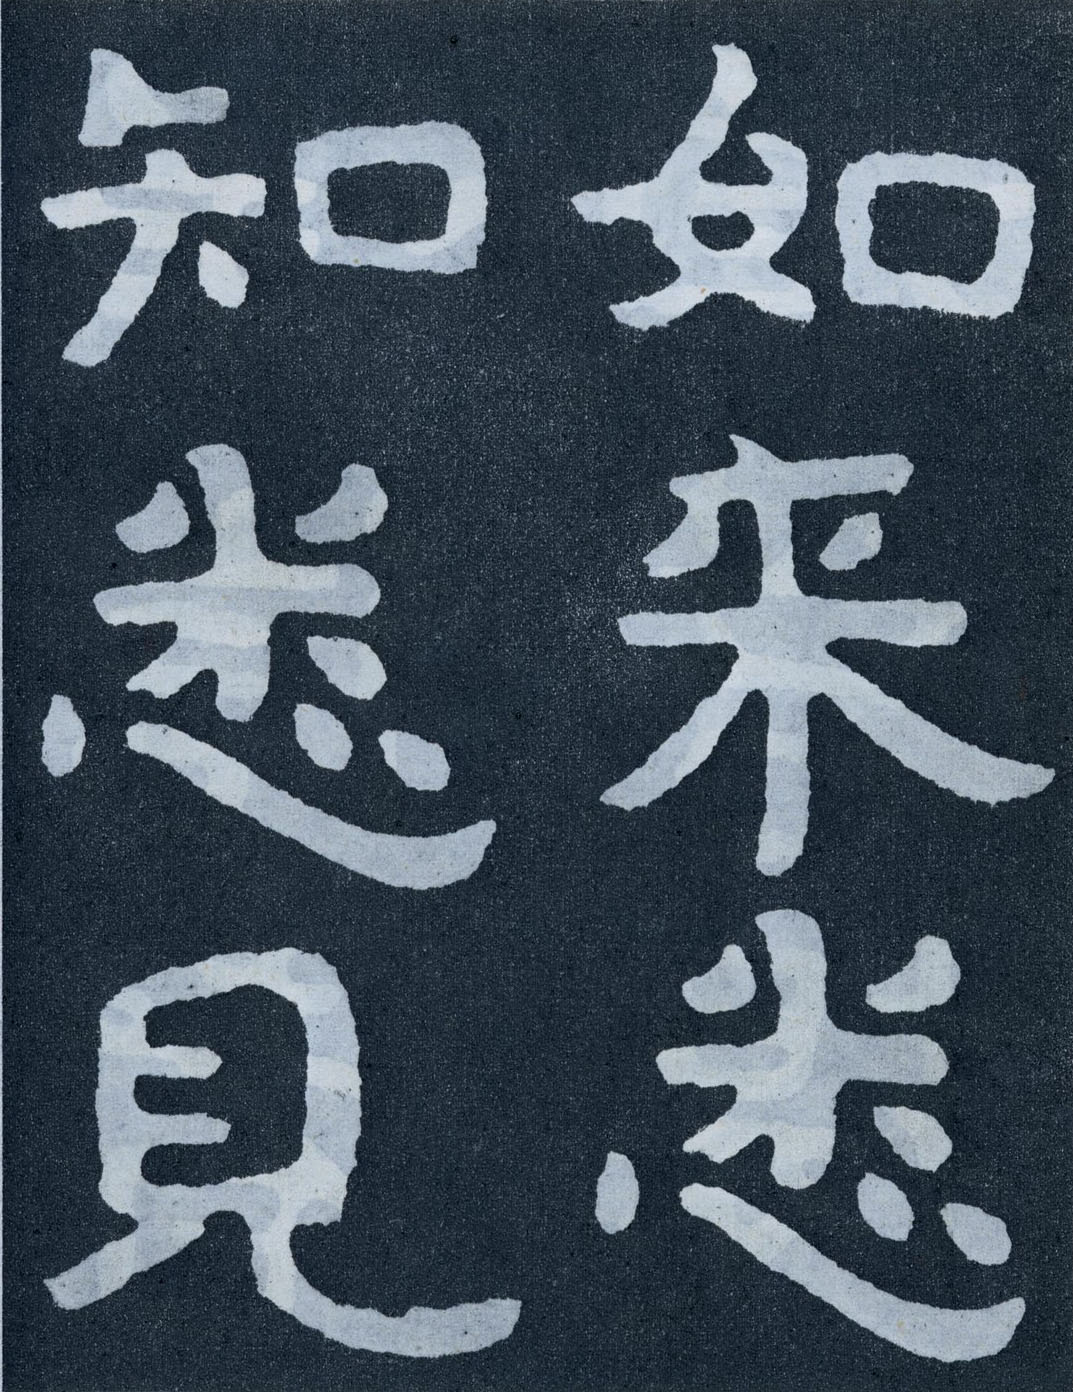 如来悉
知悉見